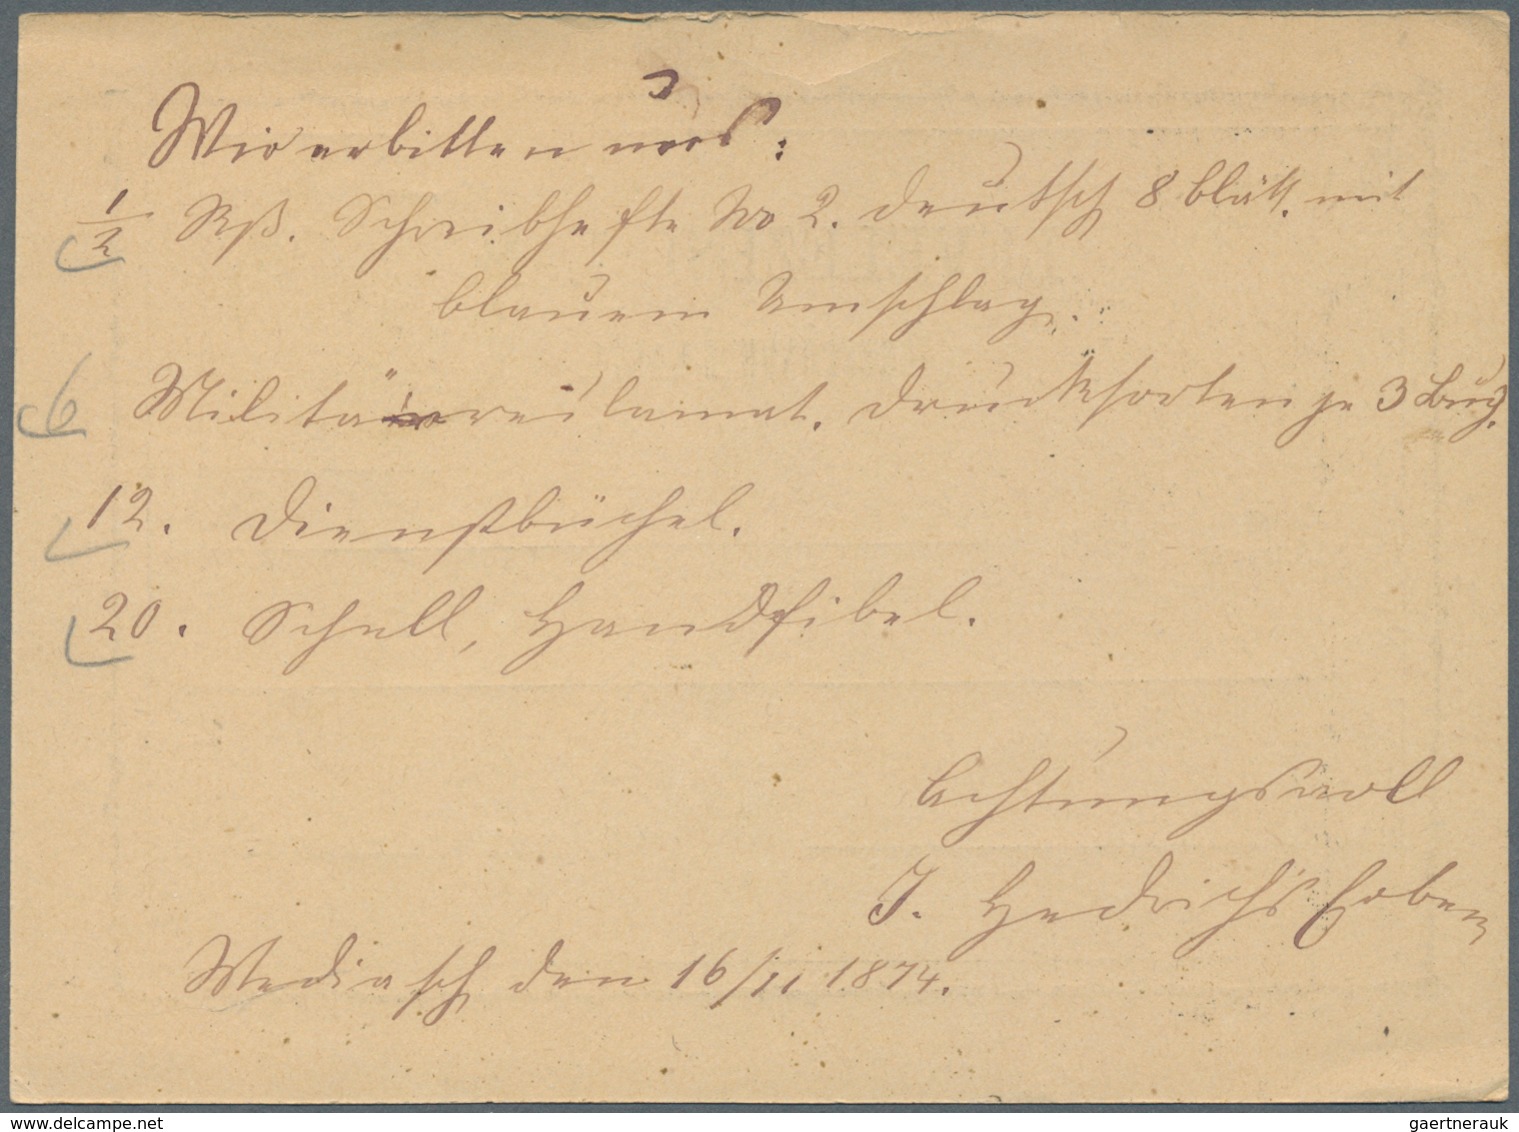 Wir erbitten uns:
1/2 Rß. Schreibhefte No 2. deutsch 8 blätt. mit
blauem Umschlag.
6 Militär reclamat. Drucksorten je 3 Bug.
12. Dienstbüchel.
20. Schull, Handfibel.
Achtungsvoll
J. Hedrich's Erben
Mediasch den 16/11 1874.
www.delcampe.net
gaertnerauk